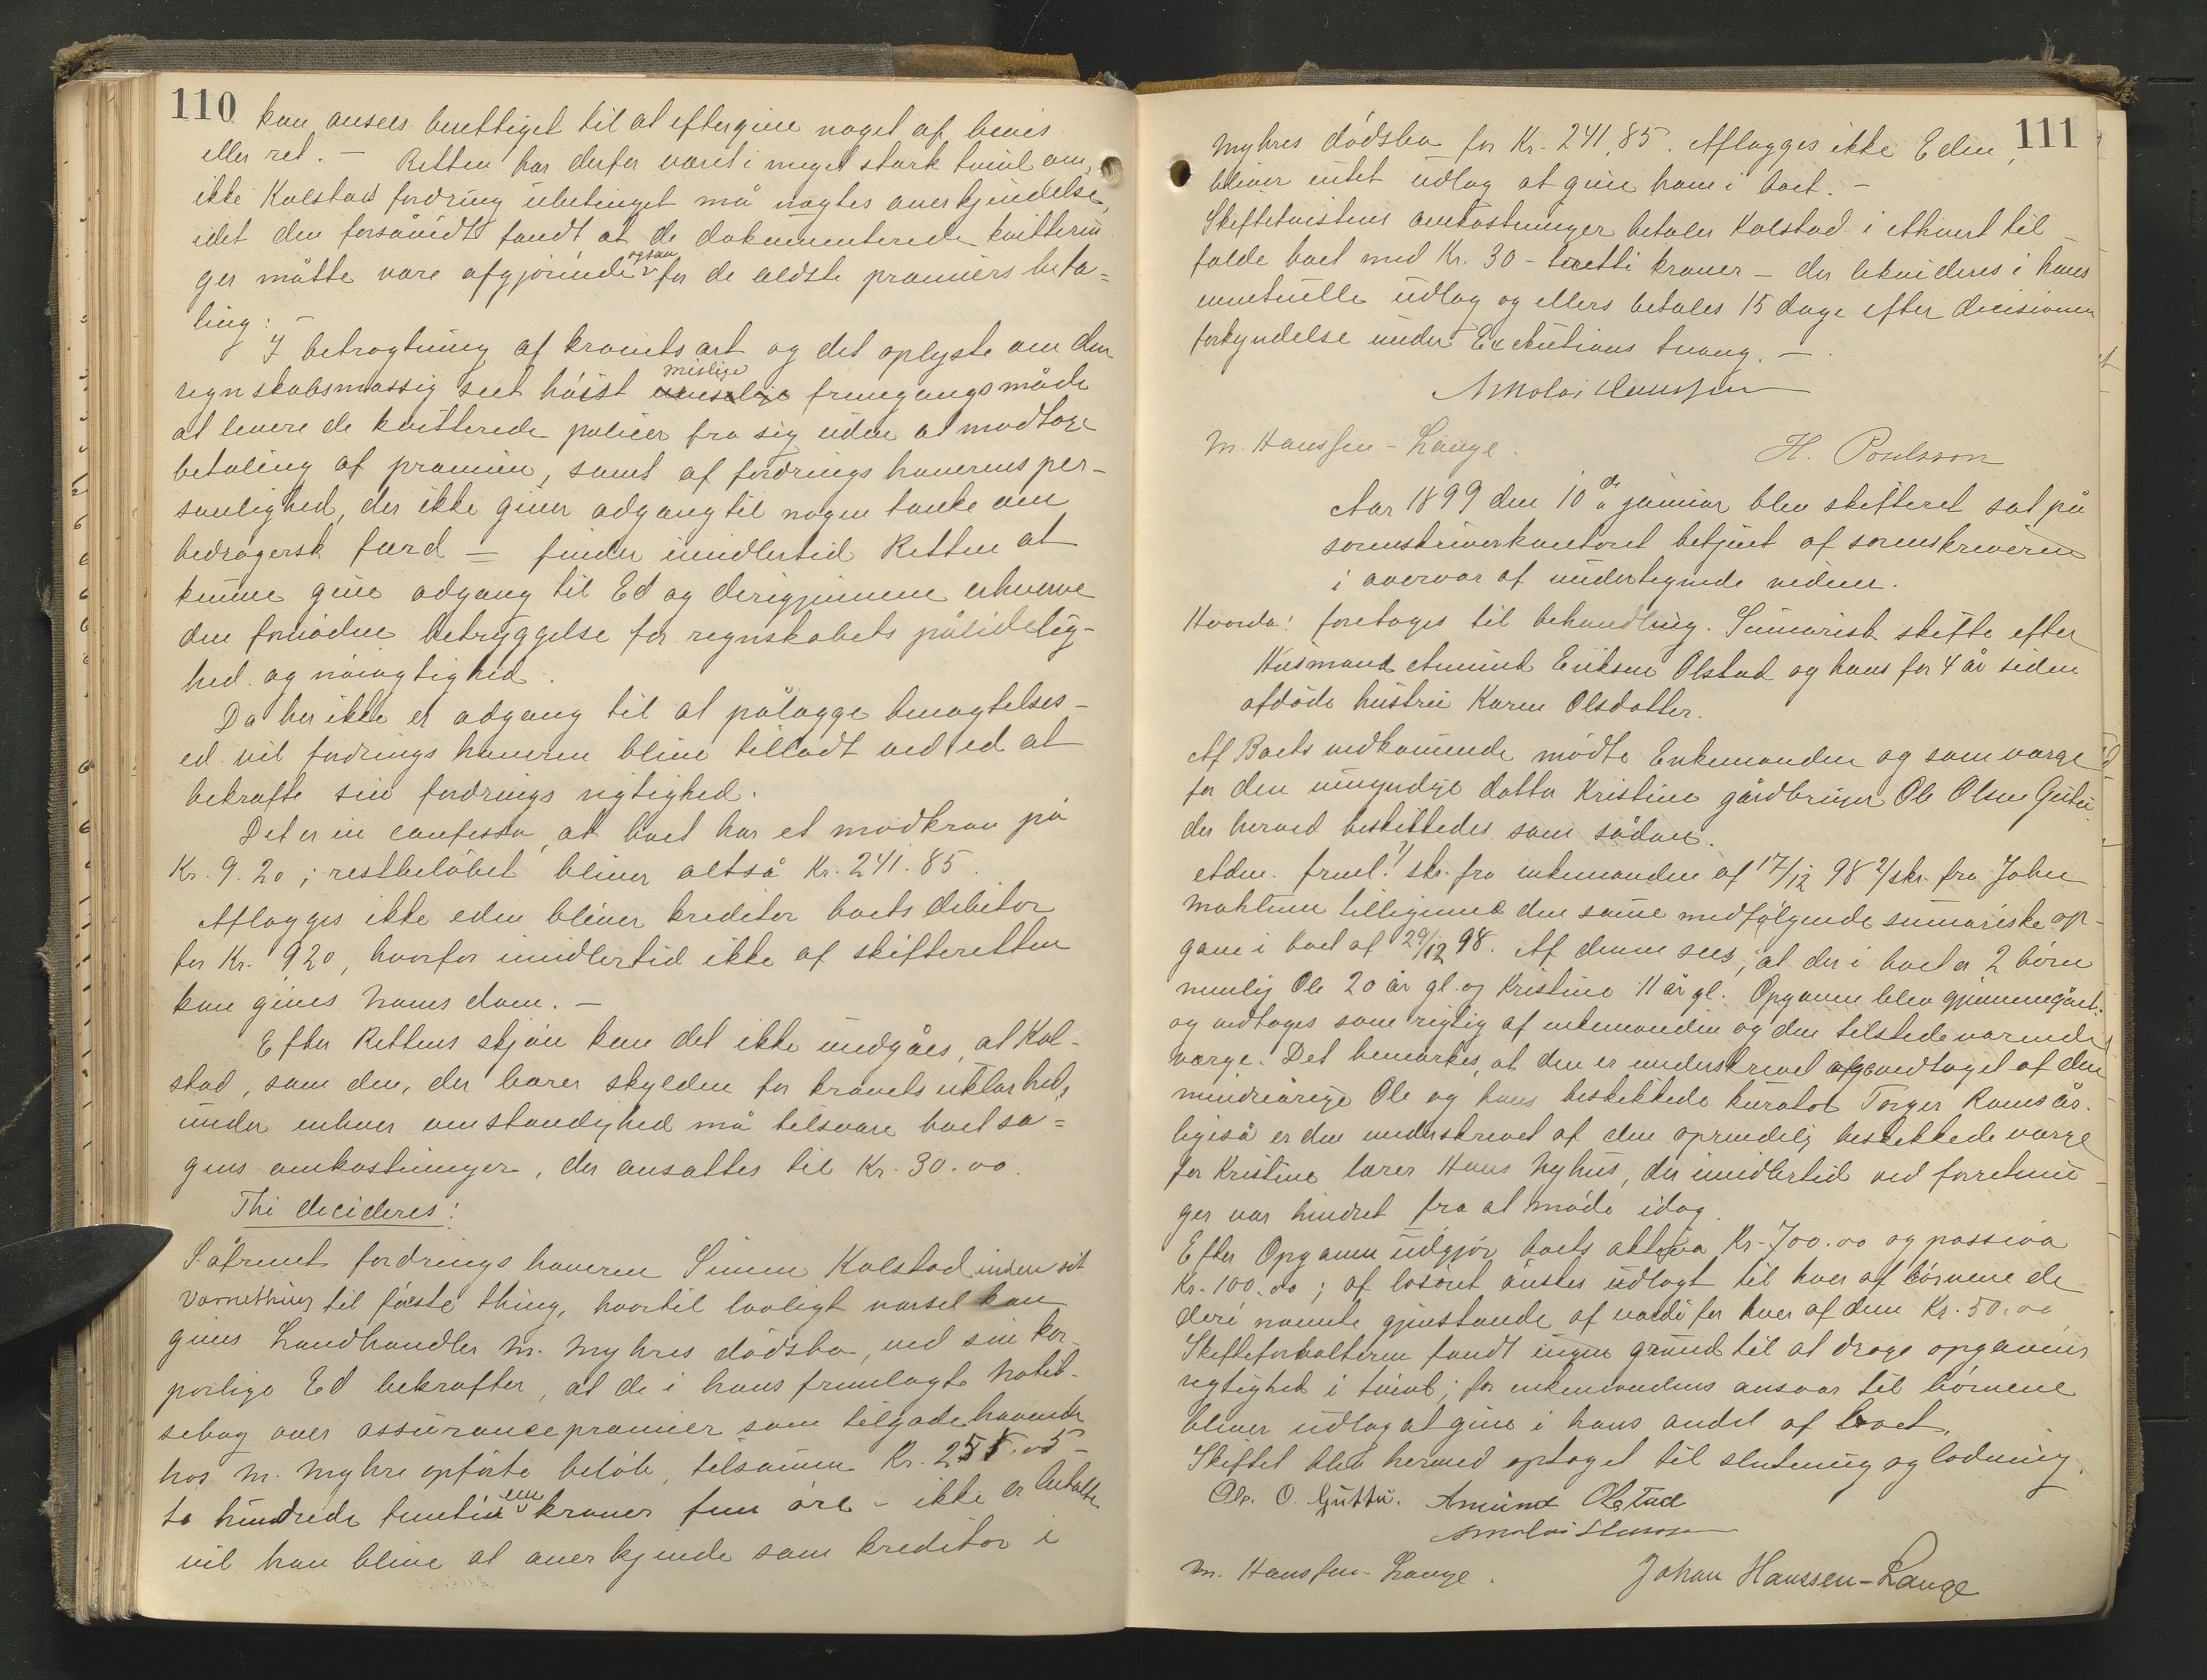 110
kan ansees berettiget til at eftergive noget af bevis
eller ret. — Retten har derfor været i meget stærk tvivl om,
ikke Kolstads fordring ubetinget må nægtes anerkjendelse,
idet den forsåvidt fandt at de dokumenterede kvitterin
ger måtte være afgjørende også for de ældste præmiers beta=
ling: —
I betragtning af kravets art og det oplyste om den
regnskabsmæssig seet høist mislige fremgangsmåde
at levere de kvitterede policer fra sig uden at modtage
betaling af præmien, samt af fordringshaverens per-
sonlighed, der ikke giver adgang til nogen tanke om
bedragersk færd — finder imidlertid Retten at
kunne give adgang til Ed og derigjennem erhverve
den fornødne betryggelse for regnskabets pålidelig-
hed og nøiagtighed.
Da her ikke er adgang til at pålægge benægtelses-
ed vil fordringshaveren blive tilladt ved ed at
bekræfte sin fordrings rigtighed.
Det er in confesso, at boet har et modkrav på
Kr. 9.20; restbeløbet bliver altså Kr. 241.85.
Aflægges ikke eden bliver kreditor boets debitor
for Kr. 9.20, hvorfor imidlertid ikke af skifteretten
kan gives ham dom. —
Efter Rettens skjøn kan det ikke undgåes, at Kol-
stad, som den, der bærer skylden for kravets uklarhed,
under enhver omstændighed må tilsvare boet sa=
gens omkostninger, der ansættes til Kr. 30.00.
Thi decideres:
Såfremt fordringshaveren Simen Kolstad inden sit
Værnething til første thing, hvortil lovligt varsel kan
gives Landhandler M. Myhres dødsbo, ved sin kor-
porlige Ed bekræfter, at de i hans fremlagte Notit-
sebog over assurancepræmier som tilgodehavende
hos M. Myhre opførte beløb, tilsammen Kr. 251.05 —
to hundrede femti en kroner fem øre — ikke er betalte
vil han blive at anerkjende som kreditor i
111
Myhres dødsbo for Kr. 241,85. Aflægges ikke Eden,
bliver intet udlæg at give ham i boet. —
Skiftetvistens omkostninger betaler Kolstad i ethvert til
fælde boet med Kr. 30 — tretti kroner — der likvideres i hans
eventuelle udlæg og ellers betales 15 dage efter decisionens
forkyndelse under Exekutions tvang. —
Nikolai Hanssen
M. Hanssen-Lange. H. Poulsson
Aar 1899 den 10de januar blev skifteret sat på
sorenskriverkontoret betjent af sorenskriveren
i overvær af undertegnede vidner.
Hvorda: foretoges til behandling. Summarisk skifte efter
Husmand Amund Eriksen Olstad og hans for 4 år siden
afdøde hustru Karen Olsdatter.
Af Boets vedkommende mødte Enkemanden og som værge
for den umyndige datter Kristine gårdbruger Ole Olsen Guttu
der herved beskikkedes som sådan.
Adm. freml. 1/ skr. fra enkemanden af 17/12 98 2/ skr. fra John
Mohlum tilligemed den samme medfølgende summariske op-
gave i boet af 29/12 98. Af denne sees, at der i boet er 2 børn
nemlig Ole 20 år gl. og Kristine 11 år gl. Opgaven blev gjennemgået
og vedtoges som rigtig af enkemanden og den tilstedeværende
værge. Det bemærkes, at den er underskrevet og vedtaget af den
mindreårige Ole og hans beskikkede kurator Torger Ramsås.
ligeså er den underskrevet af den oprindelig beskikkede værge
for Kristine lærer Hans Nyhus, der imidlertid ved forretnin
ger var hindret fra at møde idag.
Efter Opgaven udgjør boets aktiva Kr. 700.00 og passiva
Kr. 100.00; af løsøret ønskes udlagt til hver af børnene de
deri nævnte gjenstande af værdi for hver af dem Kr. 50.00
Skifteforvalteren fandt ingen grund til at drage opgavens
rigtighed i tvivl; for enkemandens ansvar til børnene
bliver udlæg at give i hans andel af boet.
Skiftet blev hermed optaget til slutning og lodning.
Ole. O. Guttu. Amund Olstad
Nikolai Hanssen
M. Hanssen-Lange. Johan Hanssen-Lange